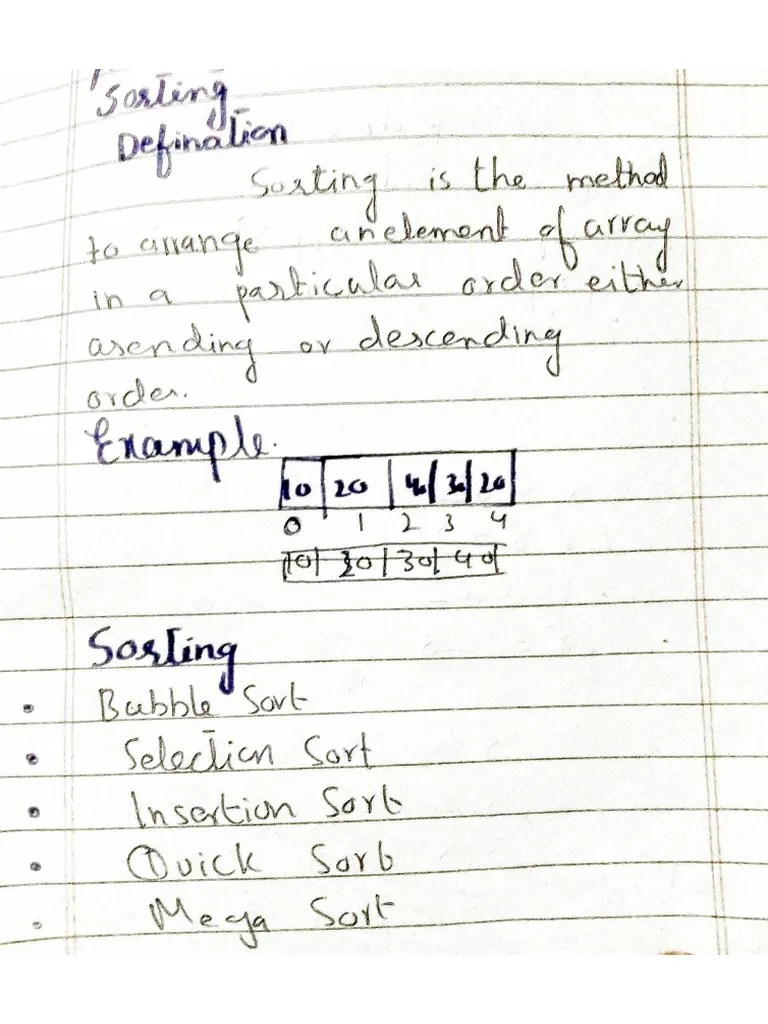 Sorting
Defination
Sorting is the method
to arrange an element of array
in a particular order either
asending or descending
order.
Example.
10 20 40 30 20
0 1 2 3 4
10 20 30 40
Sorting
• Bubble Sort
• Selection Sort
• Insertion Sort
• Quick Sort
• Mega Sort